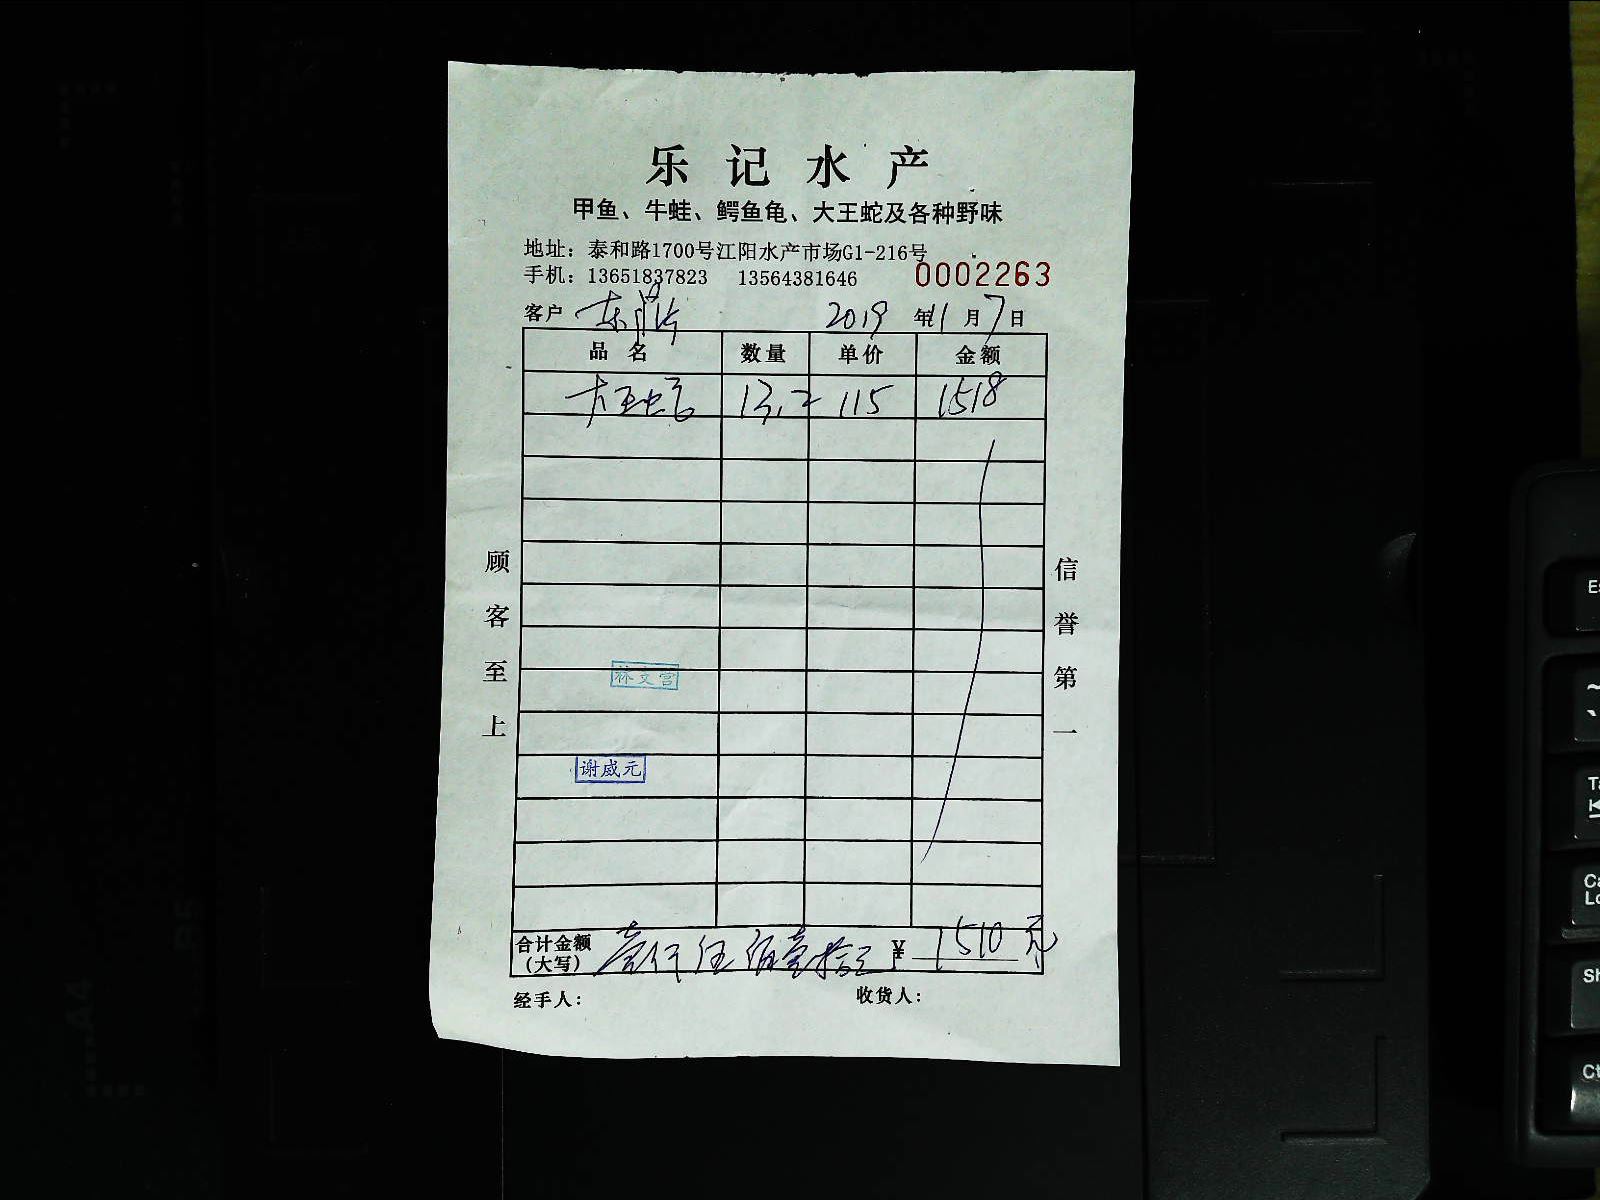 乐记水产
甲鱼、牛蛙、鳄鱼龟、大王蛇及各种野味
地址：泰和路1700号江阳水产市场G1-216号
手机：13651837823 13564381646 0002263
客户 2019年11月7日
品名 数量 单价 金额
大王蛇 13.2 115 1518
顾客至上
信誉第一
林文宫
谢威元
合计金额 壹仟伍佰壹拾元 ¥ 1510元
（大写）
经手人： 收货人：
Es
~
`
Ta
Ca
Lo
Sh
Ct
A4
B5